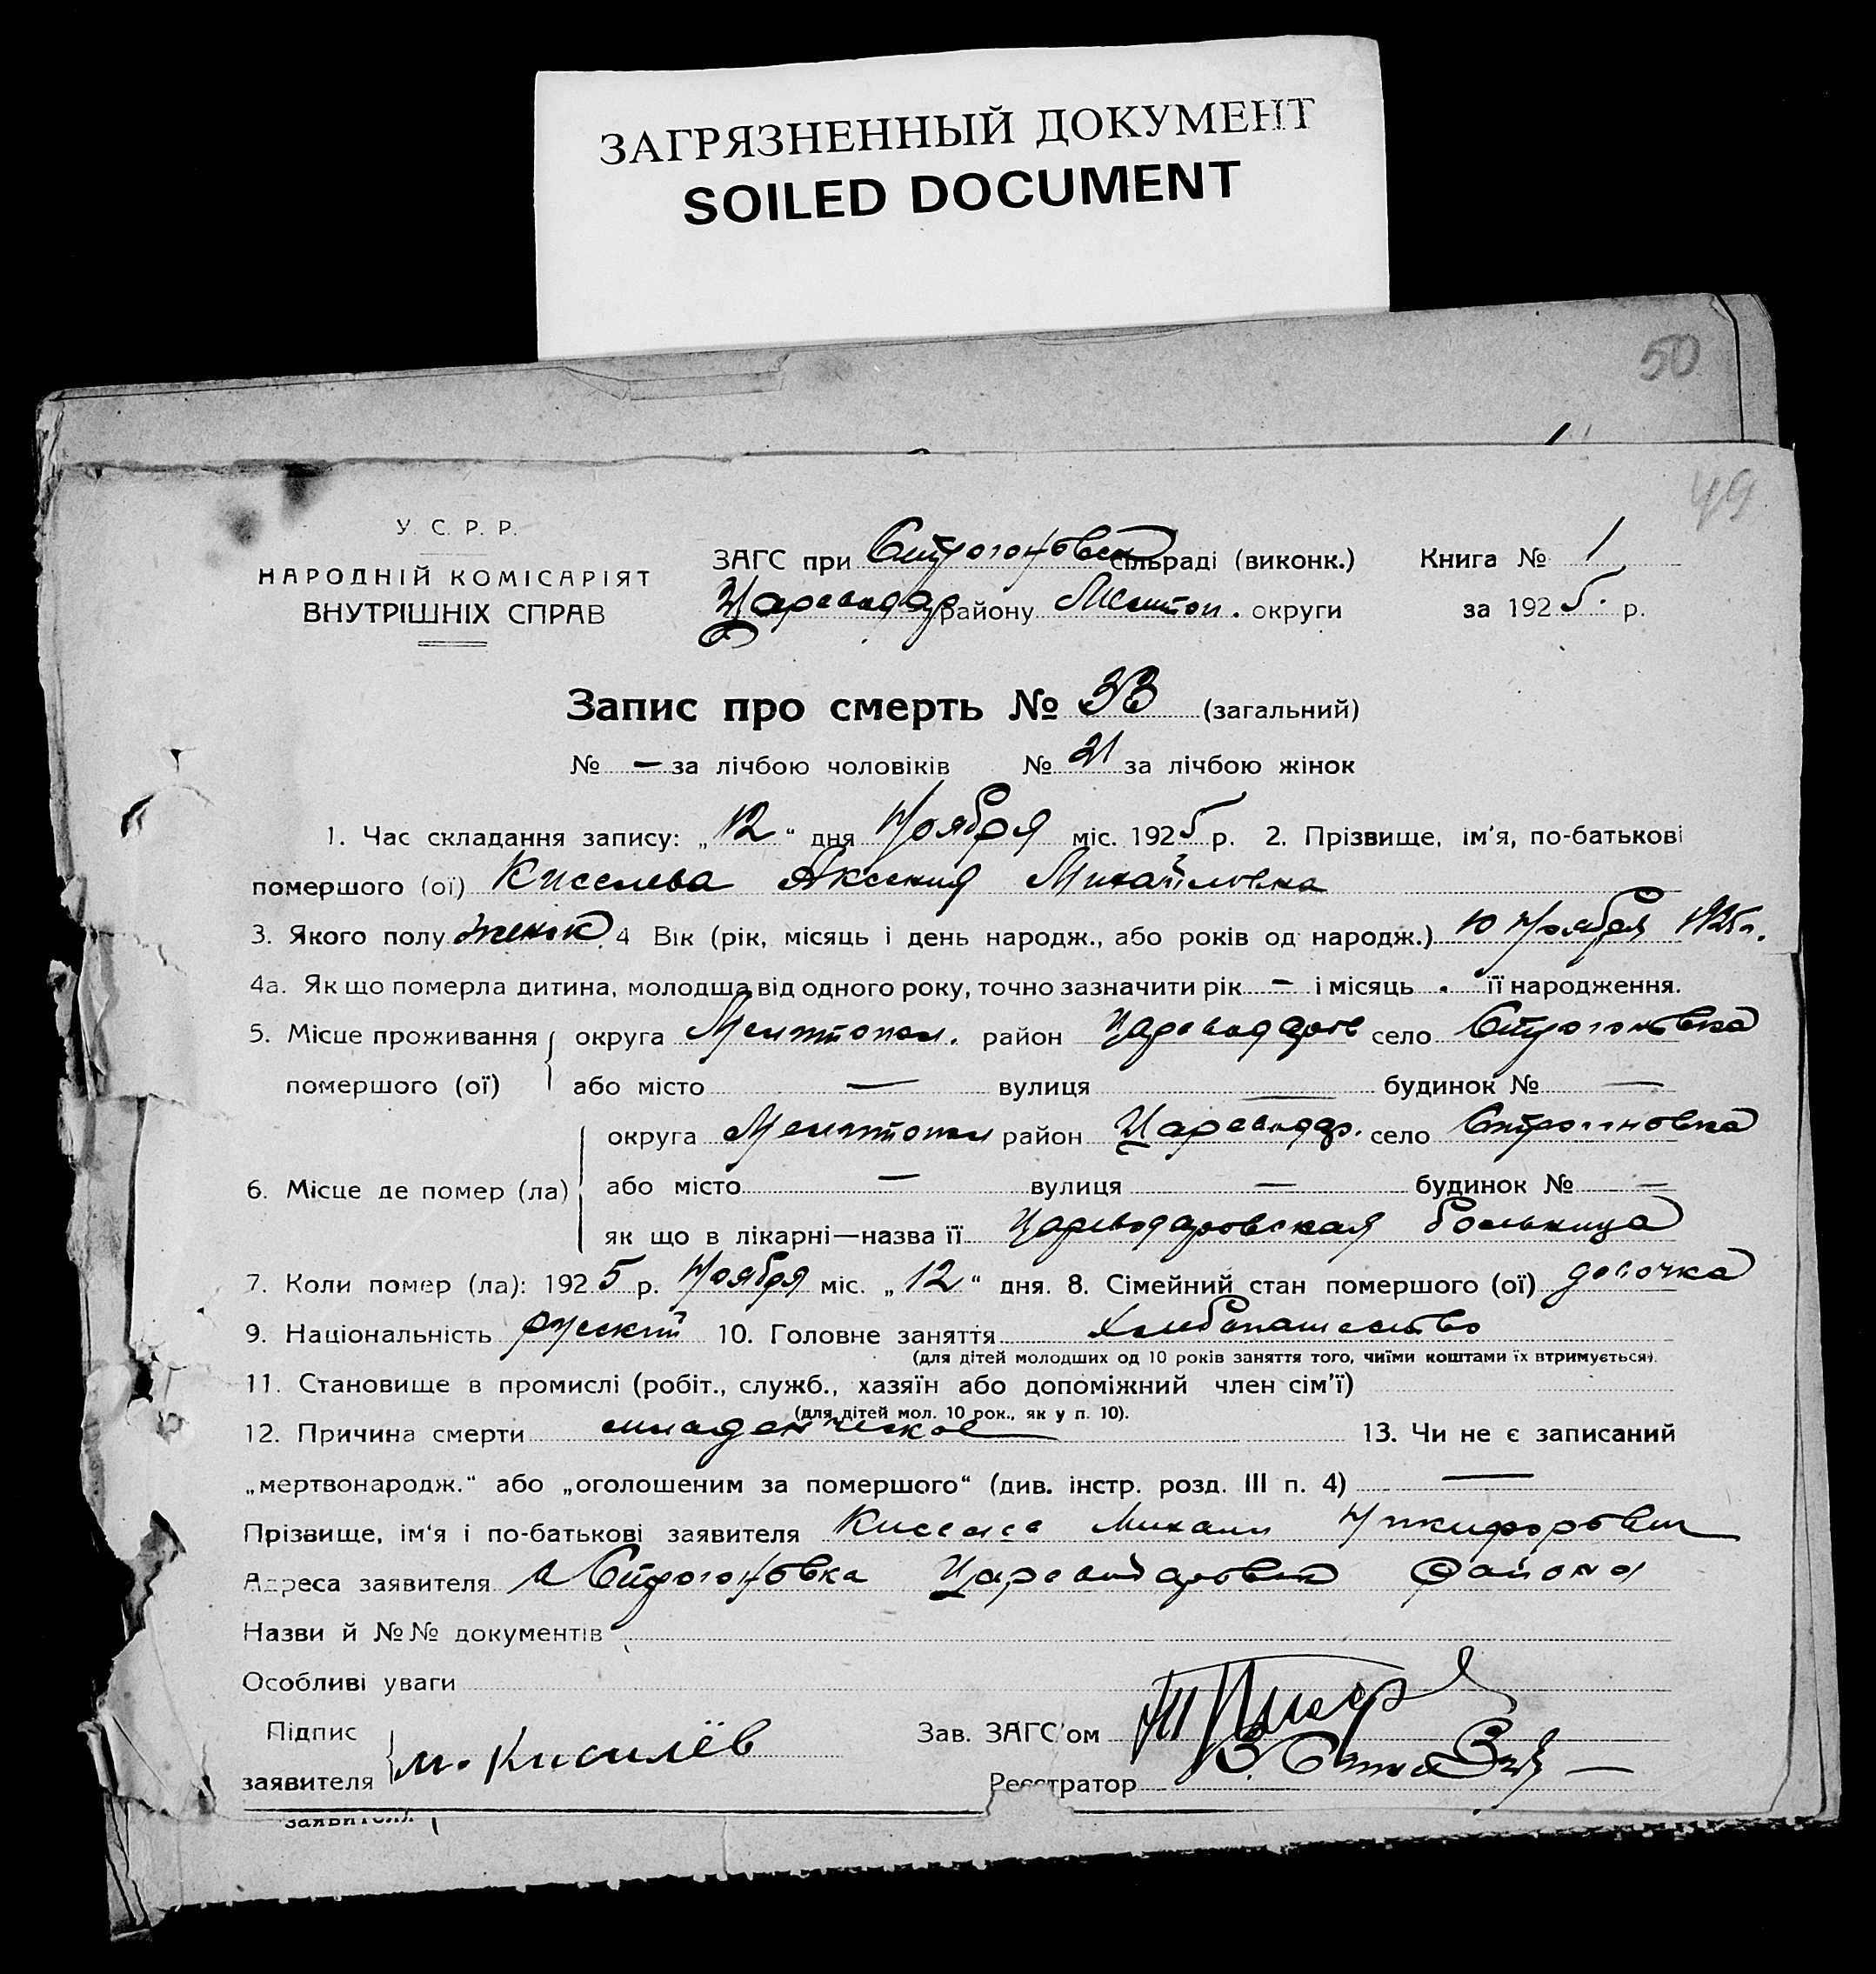 ЗАГРЯЗНЕННЫЙ ДОКУМЕНТ
SOILED DOCUMENT
50
49
У. С. Р. Р.
НАРОДНІЙ КОМІСАРІЯТ
ВНУТРІШНІХ СПРАВ
ЗАГС при Строгоновск сільраді (виконк.) Книга № 1
Царевода району Мелитоп. округи за 1925. р.
Запис про смерть № 33 (загальний)
№ — за лічбою чоловіків № 21 за лічбою жінок
1. Час складання запису: „12“ дня Ноября міс. 1925 р. 2. Прізвище, ім'я, по-батькові
помершого (ої) Киселева Аксения Михайловна
3. Якого полу женск 4 Вік (рік, місяць і день народж., або років од народж.) 10 Ноября 1925 г.
4а. Як що померла дитина, молодша від одного року, точно зазначити рік — і місяць - її народження.
5. Місце проживання округа Мелитопол. район Цареводаров село Строгоновка
помершого (ої) або місто — вулиця — будинок № —
округа Мелитопол район Цареводар. село Строгоновка
6. Місце де помер (ла) або місто — вулиця — будинок № —
як що в лікарні—назва її Цареводаровская больница
7. Коли помер (ла): 1925 р. Ноября міс. „12“ дня. 8. Сімейний стан помершого (ої) дочка
9. Національність русский 10. Головне заняття хлебопашество
(для дітей молодших од 10 років заняття того, чиїми коштами їх втримується).
11. Становище в промислі (робіт., служб., хазяїн або допоміжний член сім'ї)
(для дітей мол. 10 рок., як у п. 10).
12. Причина смерти младенческое 13. Чи не є записаний
„мертвонародж.“ або „оголошеним за помершого“ (див. інстр. розд. III п. 4) —
Прізвище, ім'я і по-батькові заявителя Киселев Михаил Никифорович
Адреса заявителя с Строгоновка Цареводаровск района
Назви й №№ документів
Особливі уваги
Підпис
заявителя м. Кисилёв
Зав. ЗАГС'ом
Реєстратор
заявителя